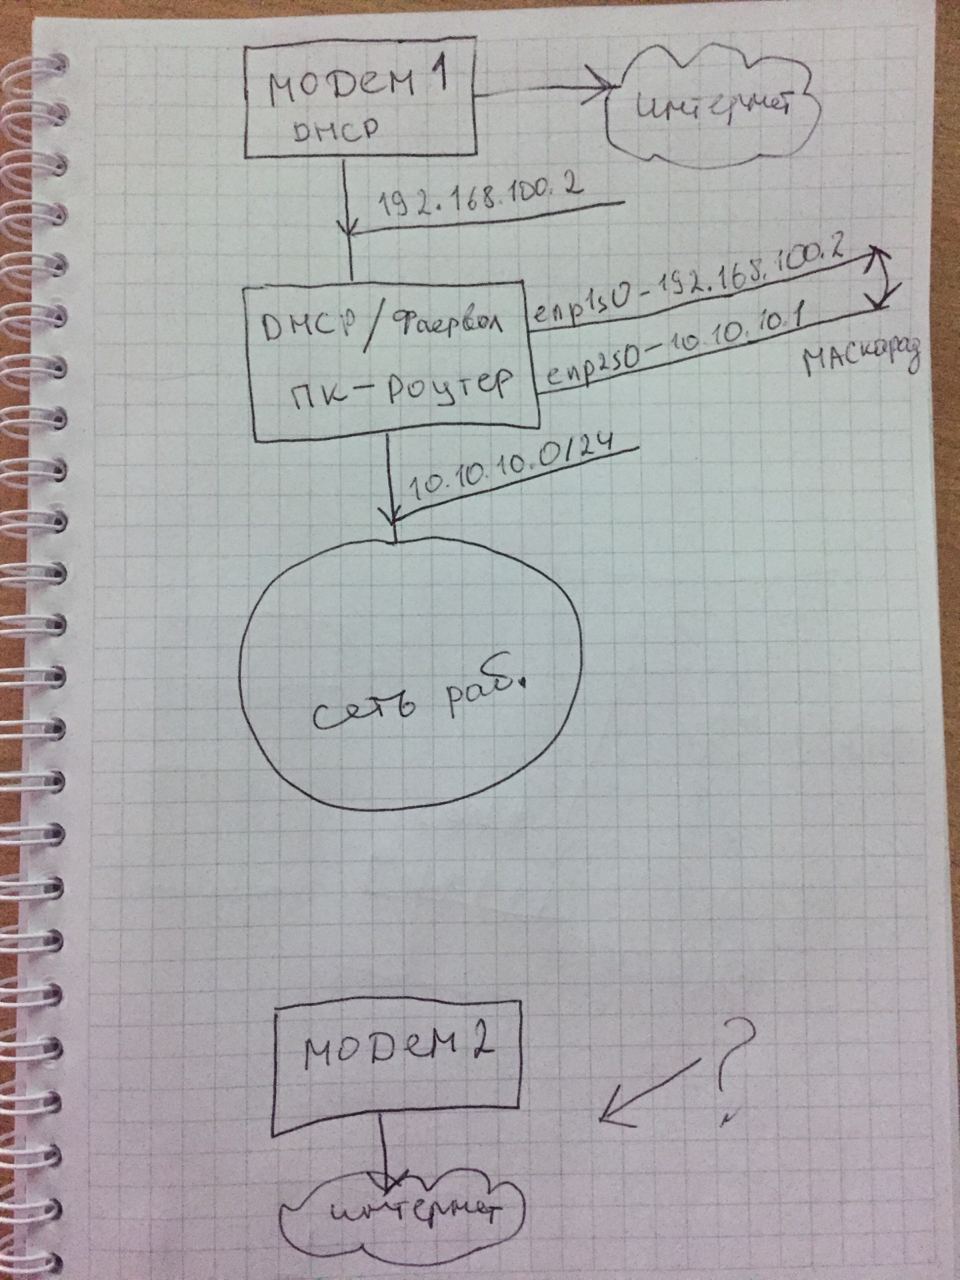 MODEM 1
DHCP
интернет
192.168.100.2
DHCP / Фаервол
ПК-Роутер
enp1s0-192.168.100.2
enp2s0-10.10.10.1
МАСКАРАД
10.10.10.0/24
сеть раб.
MODEM 2
?
интернет